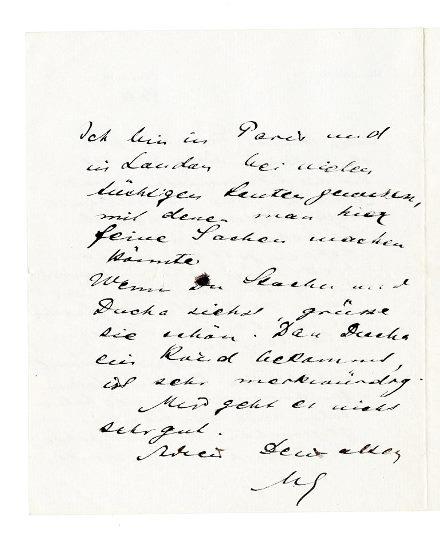 Ich bin in Paris und
in London bei vielen
tüchtigen Leuten gewesen,
mit denen man hier
feine Sachen machen
könnte.
Wenn Du Stachu und
Ducha siehst, grüsse
sie schön. Dass Ducha
ein Kind bekommt,
ist sehr merkwürdig.
Mir geht es nicht
sehr gut.
Adieu Dein alter
MG